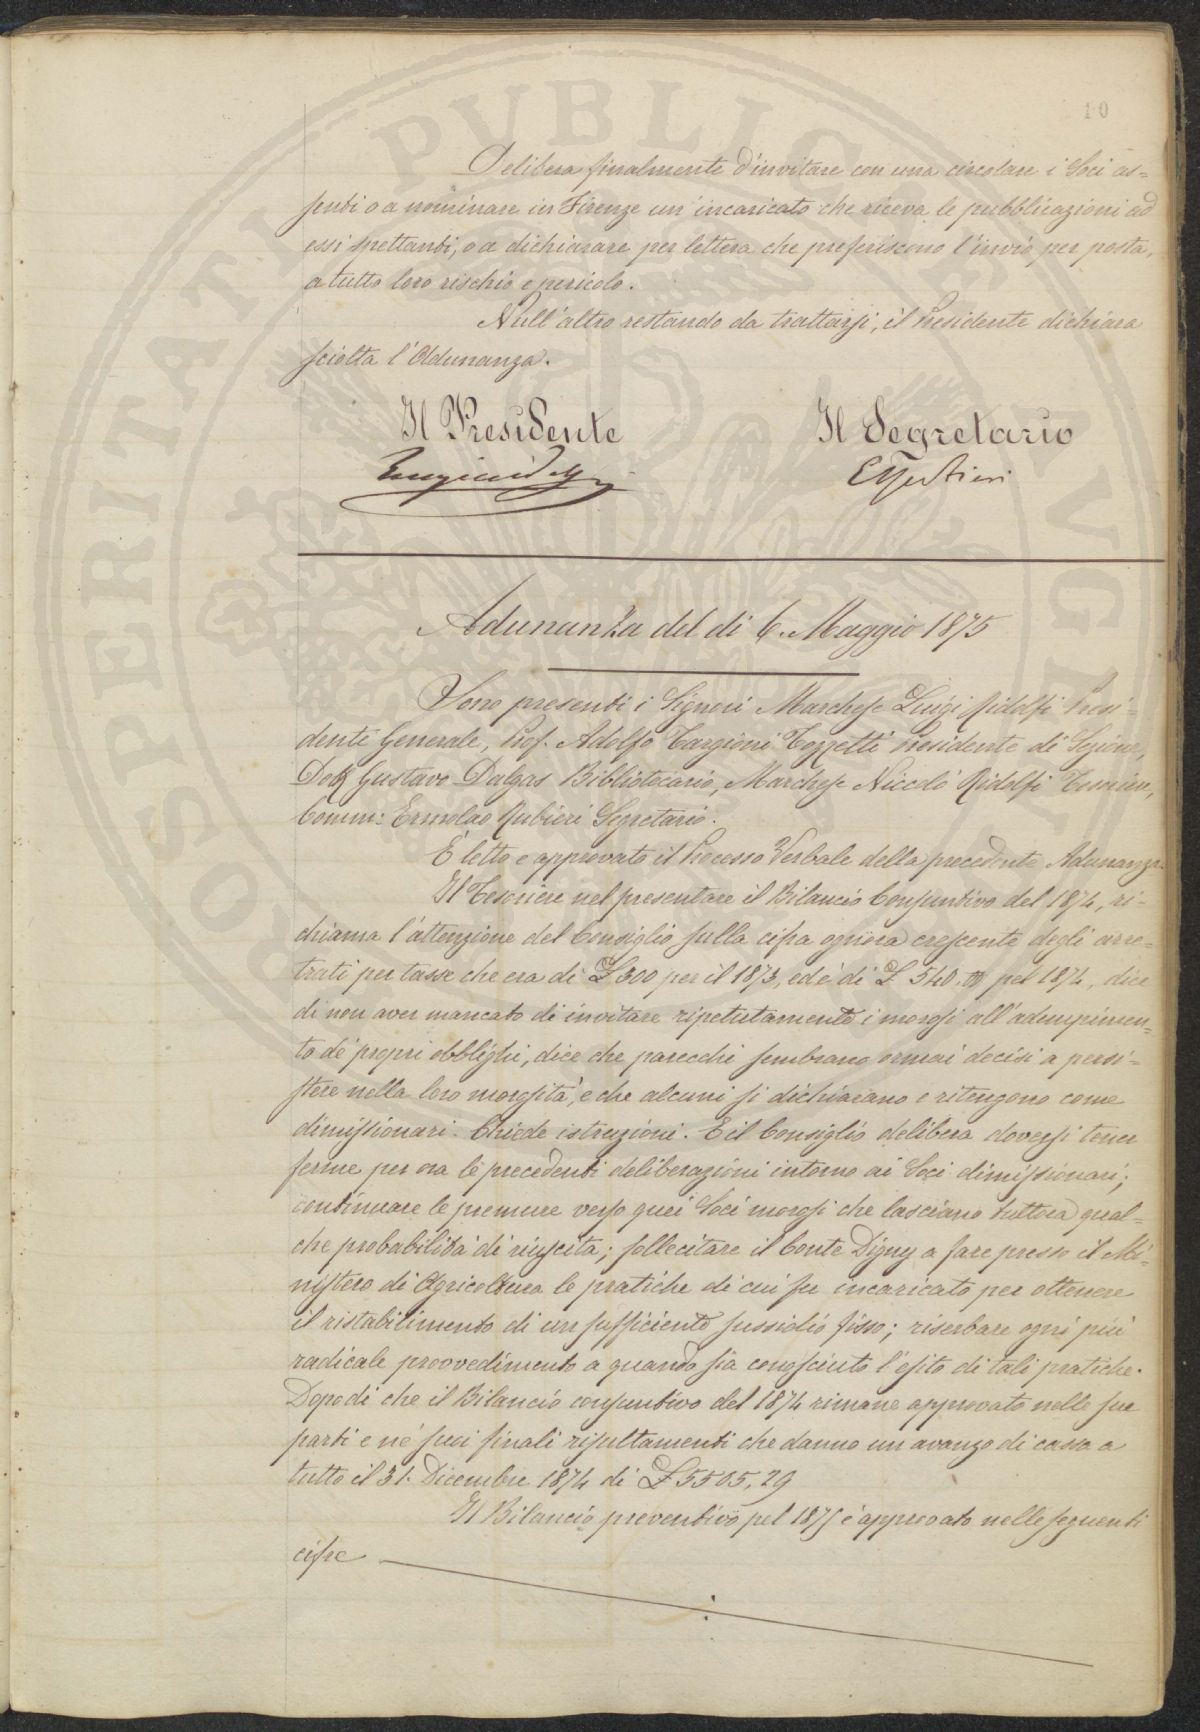 10
Delibera finalmente d'invitare con una circolare i Soci as=
senti o a nominare in Firenze un'incaricato che riceva le pubblicazioni ad
essi spettanti, o a dichiarare per lettera che preferiscono l'invio per posta,
a tutto loro rischio e pericolo.
Null'altro restando da trattarsi, il Presidente dichiara
sciolta l'Adunanza.
Il Presidente Il Segretario
Adunanza del dì 6. Maggio 1875
Sono presenti i Signori Marchese Luigi Ridolfi Presi=
dente Generale, Prof. Adolfo Targioni Tozzetti Presidente di Sezione,
Dott. Gustavo Dalgas Bibliotecario, Marchese Niccolò Ridolfi
Comm: Ermolao Rubieri Segretario.
È letto e approvato il Processo Verbale della precedente Adunanza.
Il Tesoriere nel presentare il Bilancio Consuntivo del 1874, ri=
chiama l'attenzione del Consiglio sulla cifra ognora crescente degli arre=
trati per tasse che era di £ 300 per il 1873, ed è di £ 540. pel 1874, dice
di non aver mancato di invitare ripetutamente i morosi all'adempimen=
to de' propri obblighi, dice che parecchi sembrano ormai decisi a persi=
stere nella loro morosità, e che alcuni si dichiarano e ritengono come
dimissionari. Chiede istruzioni. E il Consiglio delibera doversi tener
ferme per ora le precedenti deliberazioni intorno ai Soci dimissionari;
continuare le premure verso quei Soci morosi che lasciano tuttora qual=
che probabilità di riuscita; sollecitare il Conte Digny a fare presso il Mi=
nistero di Agricoltura le pratiche di cui fu incaricato per ottenere
il ristabilimento di un sufficiente sussidio fisso; riserbare ogni più
radicale provvedimento a quando sia conosciuto l'esito di tali pratiche.
Dopo di che il Bilancio consuntivo del 1874 rimane approvato nelle sue
parti e ne' suoi finali risultamenti che danno un avanzo di cassa a
tutto il 31. Dicembre 1874 di £ 5505,29
Il Bilancio preventivo pel 1875 è approvato nelle seguenti
cifre